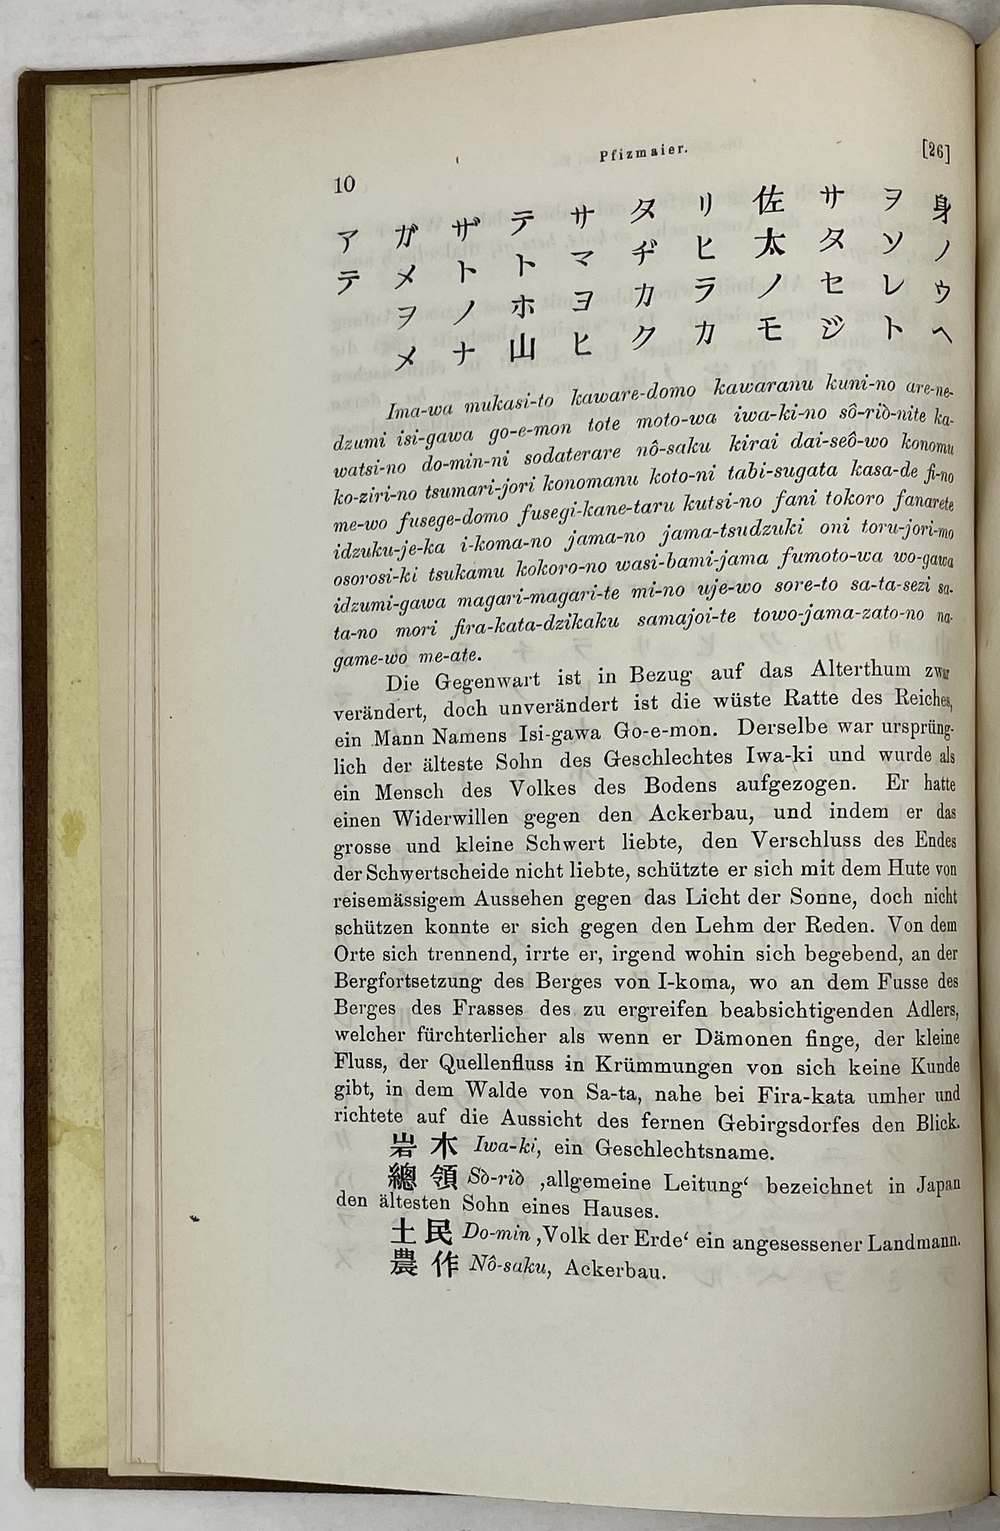 10 Pfizmaier. [26]
身ノウヘ
ヲソレト
サタセジ
佐太ノモ
リヒラカ
タヂカク
サマヨヒ
テトホ山
ザトノナ
ガメヲメ
アテ
Ima-wa mukasi-to kaware-domo kawaranu kuni-no are-ne-
dzumi isi-gawa go-e-mon tote moto-wa iwa-ki-no sô-riò-nite ka-
watsi-no do-min-ni sodaterare nô-saku kirai dai-seô-wo konomu
ko-ziri-no tsumari-jori konomanu koto-ni tabi-sugata kasa-de fi-no
me-wo fusege-domo fusegi-kane-taru kutsi-no fani tokoro fanarete
idzuku-je-ka i-koma-no jama-no jama-tsudzuki oni toru-jori-mo
osorosi-ki tsukamu kokoro-no wasi-bami-jama fumoto-wa wo-gawa
idzumi-gawa magari-magari-te mi-no uje-wo sore-to sa-ta-sezi sa-
ta-no mori fira-kata-dzikaku samajoi-te towo-jama-zato-no na-
game-wo me-ate.
Die Gegenwart ist in Bezug auf das Alterthum zwar
verändert, doch unverändert ist die wüste Ratte des Reiches,
ein Mann Namens Isi-gawa Go-e-mon. Derselbe war ursprüng-
lich der älteste Sohn des Geschlechtes Iwa-ki und wurde als
ein Mensch des Volkes des Bodens aufgezogen. Er hatte
einen Widerwillen gegen den Ackerbau, und indem er das
grosse und kleine Schwert liebte, den Verschluss des Endes
der Schwertscheide nicht liebte, schützte er sich mit dem Hute von
reisemässigem Aussehen gegen das Licht der Sonne, doch nicht
schützen konnte er sich gegen den Lehm der Reden. Von dem
Orte sich trennend, irrte er, irgend wohin sich begebend, an der
Bergfortsetzung des Berges von I-koma, wo an dem Fusse des
Berges des Frasses des zu ergreifen beabsichtigenden Adlers,
welcher fürchterlicher als wenn er Dämonen finge, der kleine
Fluss, der Quellenfluss in Krümmungen von sich keine Kunde
gibt, in dem Walde von Sa-ta, nahe bei Fira-kata umher und
richtete auf die Aussicht des fernen Gebirgsdorfes den Blick.
岩木 Iwa-ki, ein Geschlechtsname.
總領 Sò-riò ‚allgemeine Leitung‘ bezeichnet in Japan
den ältesten Sohn eines Hauses.
土民 Do-min ‚Volk der Erde‘ ein angesessener Landmann.
農作 Nô-saku, Ackerbau.